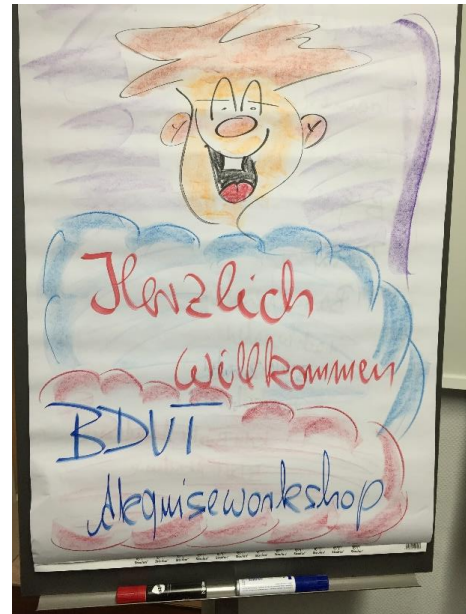 Herzlich
Willkommen
BDVT
Akquiseworkshop